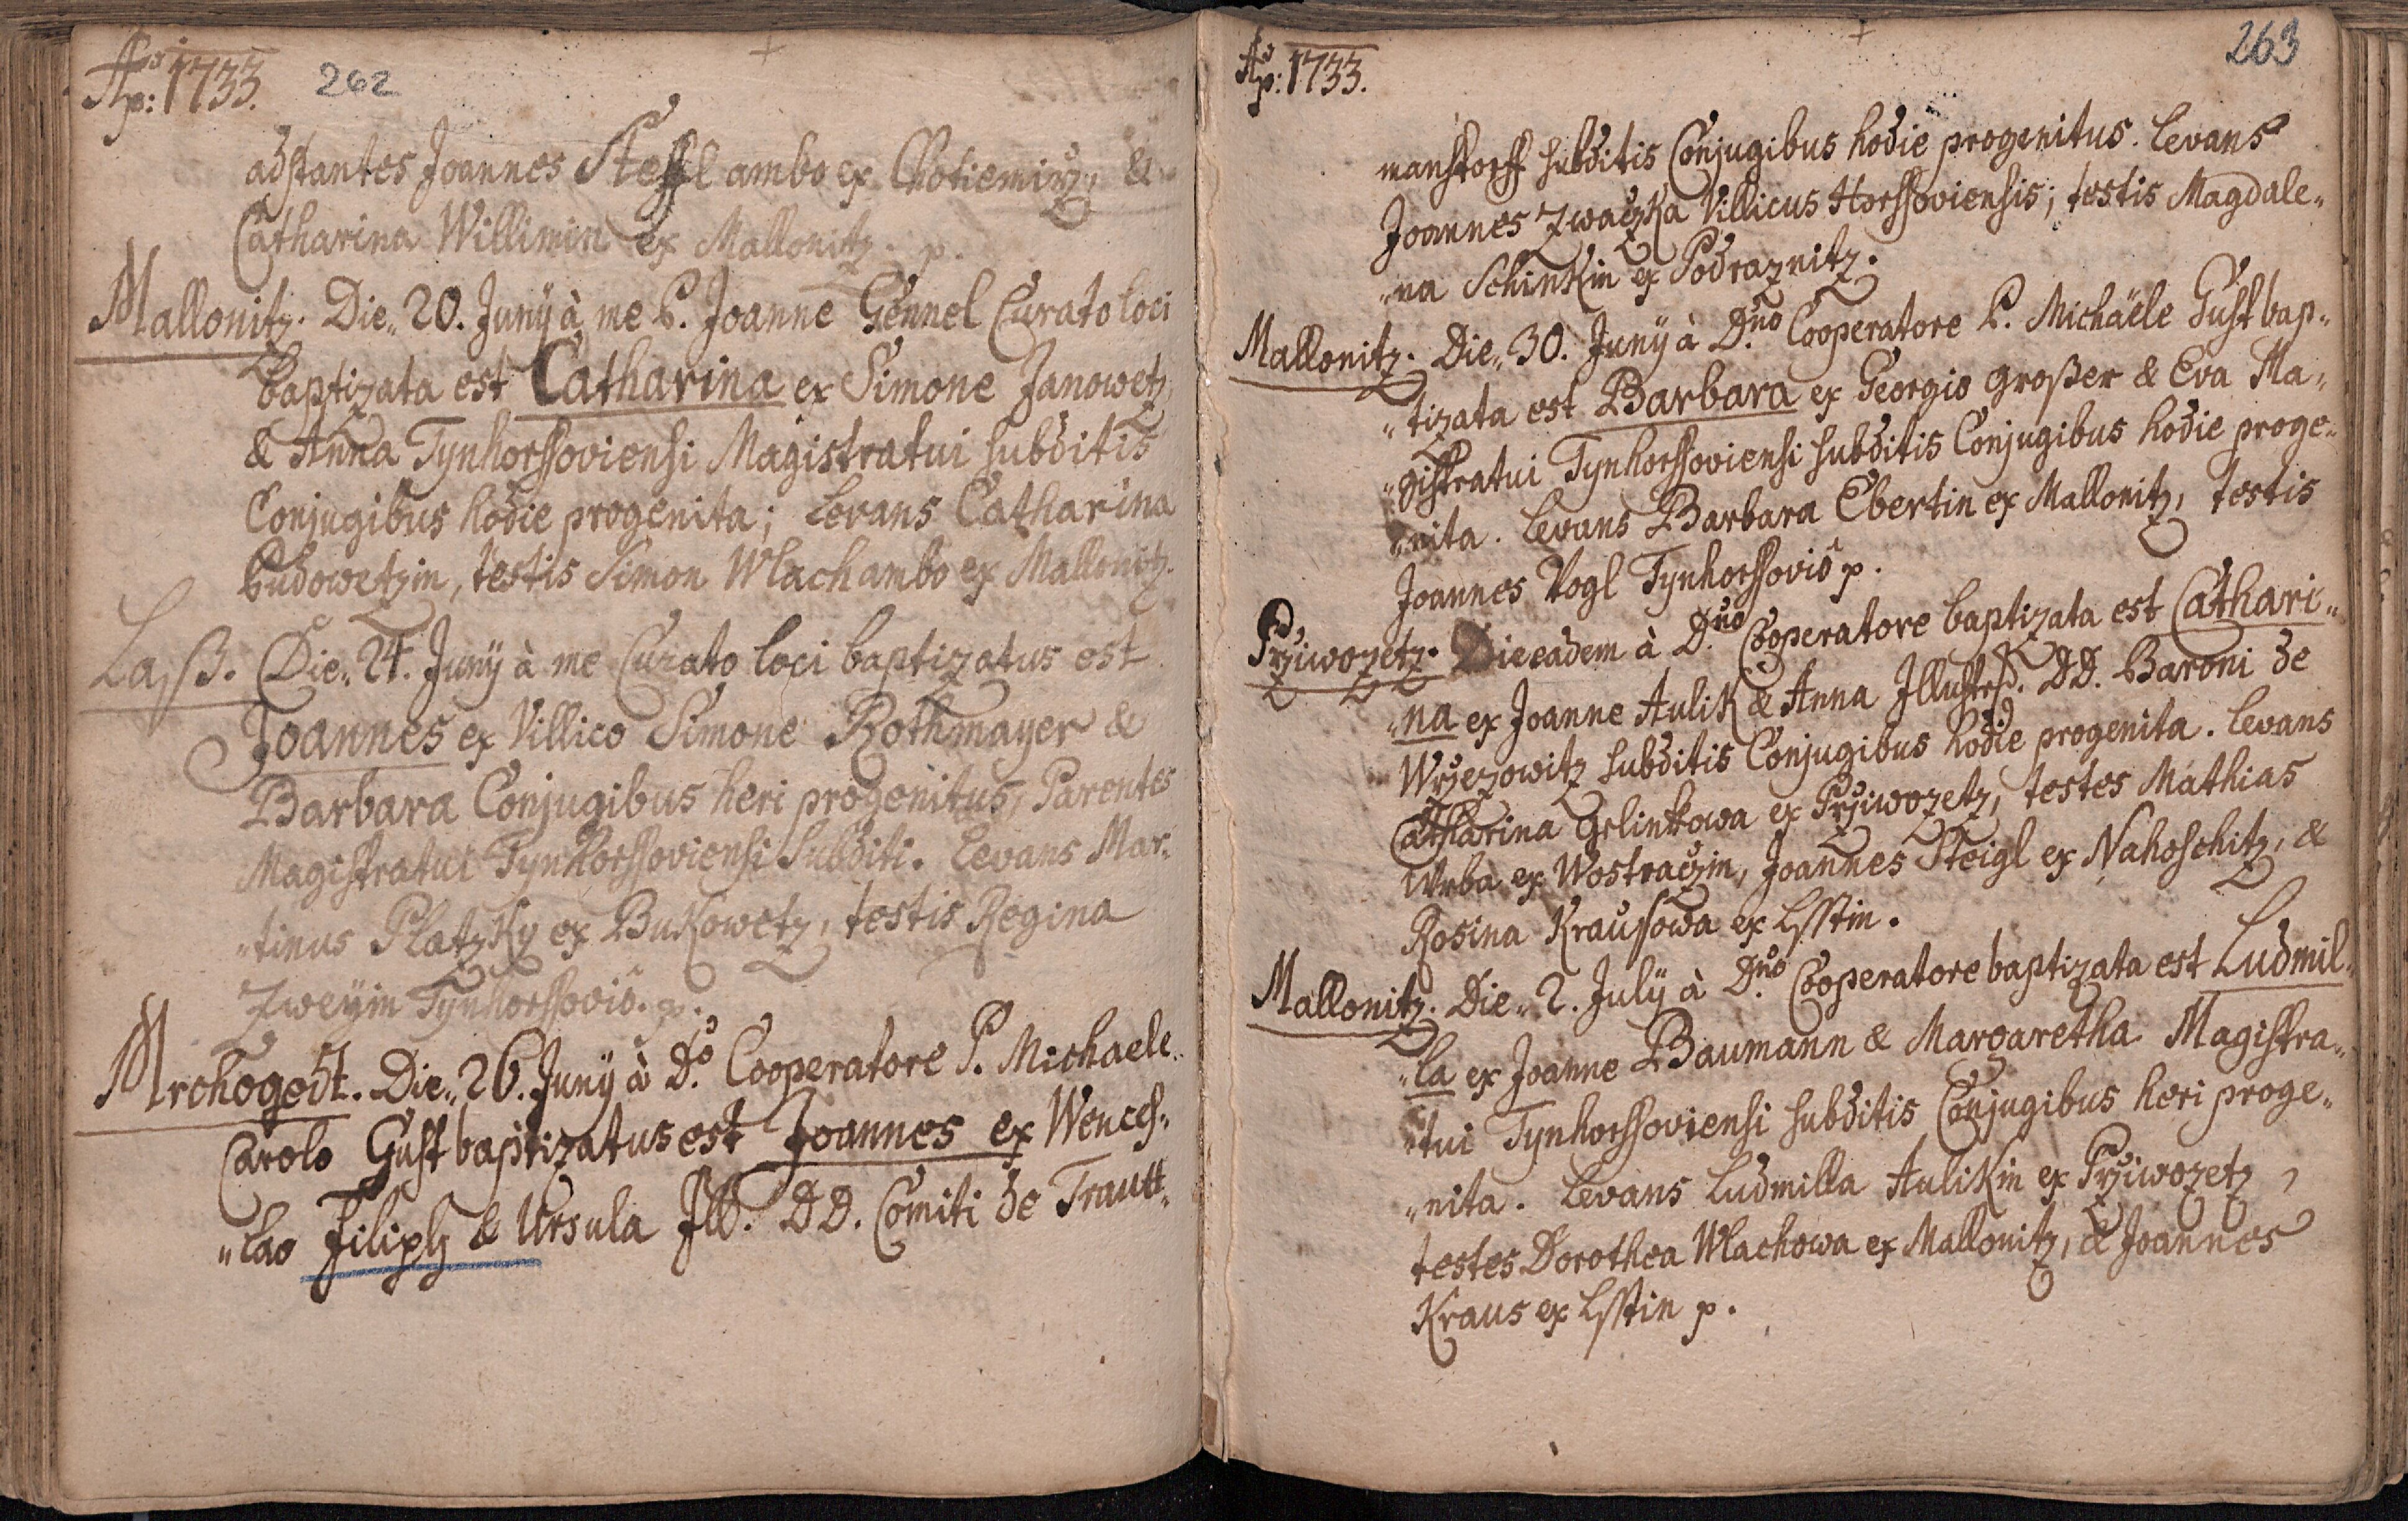 Aō p: 1733. 262
adstantes Joannes Steffl ambo ex Chotiemirz, &
Catharina Willimin ex Mallonitz. p.
Mallonitz. Die 20. Junÿ à me P. Joanne Gennel Curato loci
baptizata est Catharina ex Simone Janowetz
& Anna Tynhorssoviensi Magistratui subditis
Conjugibus hodie progenita; Levans Catharina
Budowetzin, testis Simon Wlach ambo ex Mallonitz.
Lasß. Die 24. Junÿ à me Curato loci baptizatus est
Joannes ex Villico Simone Rothmayer &
Barbara Conjugibus heri progenitus, Parentes
Magistratui Tynhorssoviensi subditi. Levans Mar-
"tinus Platzky ex Bukowetz, testis Regina
Zweÿin Tynhorssovio. p.
Mrchogedt. Die 26. Junÿ à D.o Cooperatore P. Michaele
Carolo Gust baptizatus est Joannes ex Wences-
"lao Filiph & Ursula Ill. DD. Comiti de Trautt-
Aō p: 1733. 263
manstorff subditis Conjugibus hodie progenitus. Levans
Joannes Zwaczka Villicus Horssoviensis; testis Magdale-
"na Schinkin ex Podraznitz.
Mallonitz. Die 30. Junÿ à D.no Cooperatore P. Michaële Gust bap-
"tizata est Barbara ex Georgio Großer & Eva Ma-
"gistratui Tynhorssoviensi subditis Conjugibus hodie proge-
"nita. Levans Barbara Ebertin ex Mallonitz, testis
Joannes Vogl Tynhorssovio p.
Przivozetz. Die eadem à D.no Cooperatore baptizata est Cathari-
"na ex Joanne Aulik & Anna Illustrss. DD. Baroni de
Wrzezowitz subditis Conjugibus hodie progenita. Levans
Catharina Gelinkowa ex Przivozetz, testes Mathias
Wrba ex Wostraczin, Joannes Steigl ex Nahoschitz, &
Rosina Kraussowa ex Lsstin.
Mallonitz. Die 2. Julÿ à D.no Cooperatore baptizata est Ludmil-
"la ex Joanne Baumann & Margaretha Magistra-
"tui Tynhorssoviensi subditis Conjugibus heri proge-
"nita. Levans Ludmilla Aulikin ex Przivozetz,
testes Dorothea Wlachowa ex Mallonitz, & Joannes
Kraus ex Lsstin p.